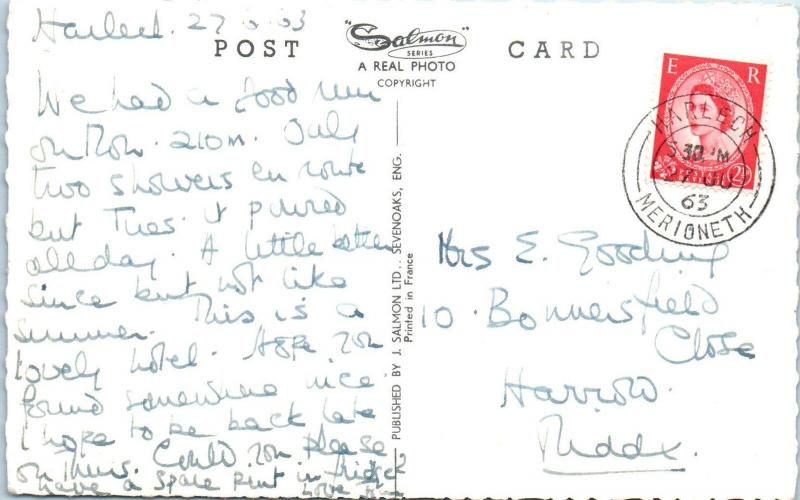 Harlech. 27 6 63
POST CARD
"Salmon"
SERIES
A REAL PHOTO
COPYRIGHT
We had a good run
on Mon. 210m. Only
two showers en route
but Tues. it poured
all day. A little better
since but not like
summer. This is a
lovely hotel. Hope you
found somewhere nice.
I hope to be back late
on Thurs. Could you please
have a spare pint in fridge?
Love
PUBLISHED BY J. SALMON LTD.. SEVENOAKS, ENG.
Printed in France
E R
HARLECH
30 PM
27 JU
63
MERIONETH
Mrs E. Gooding
10 Bonnersfield
Close
Harrow.
Middx.